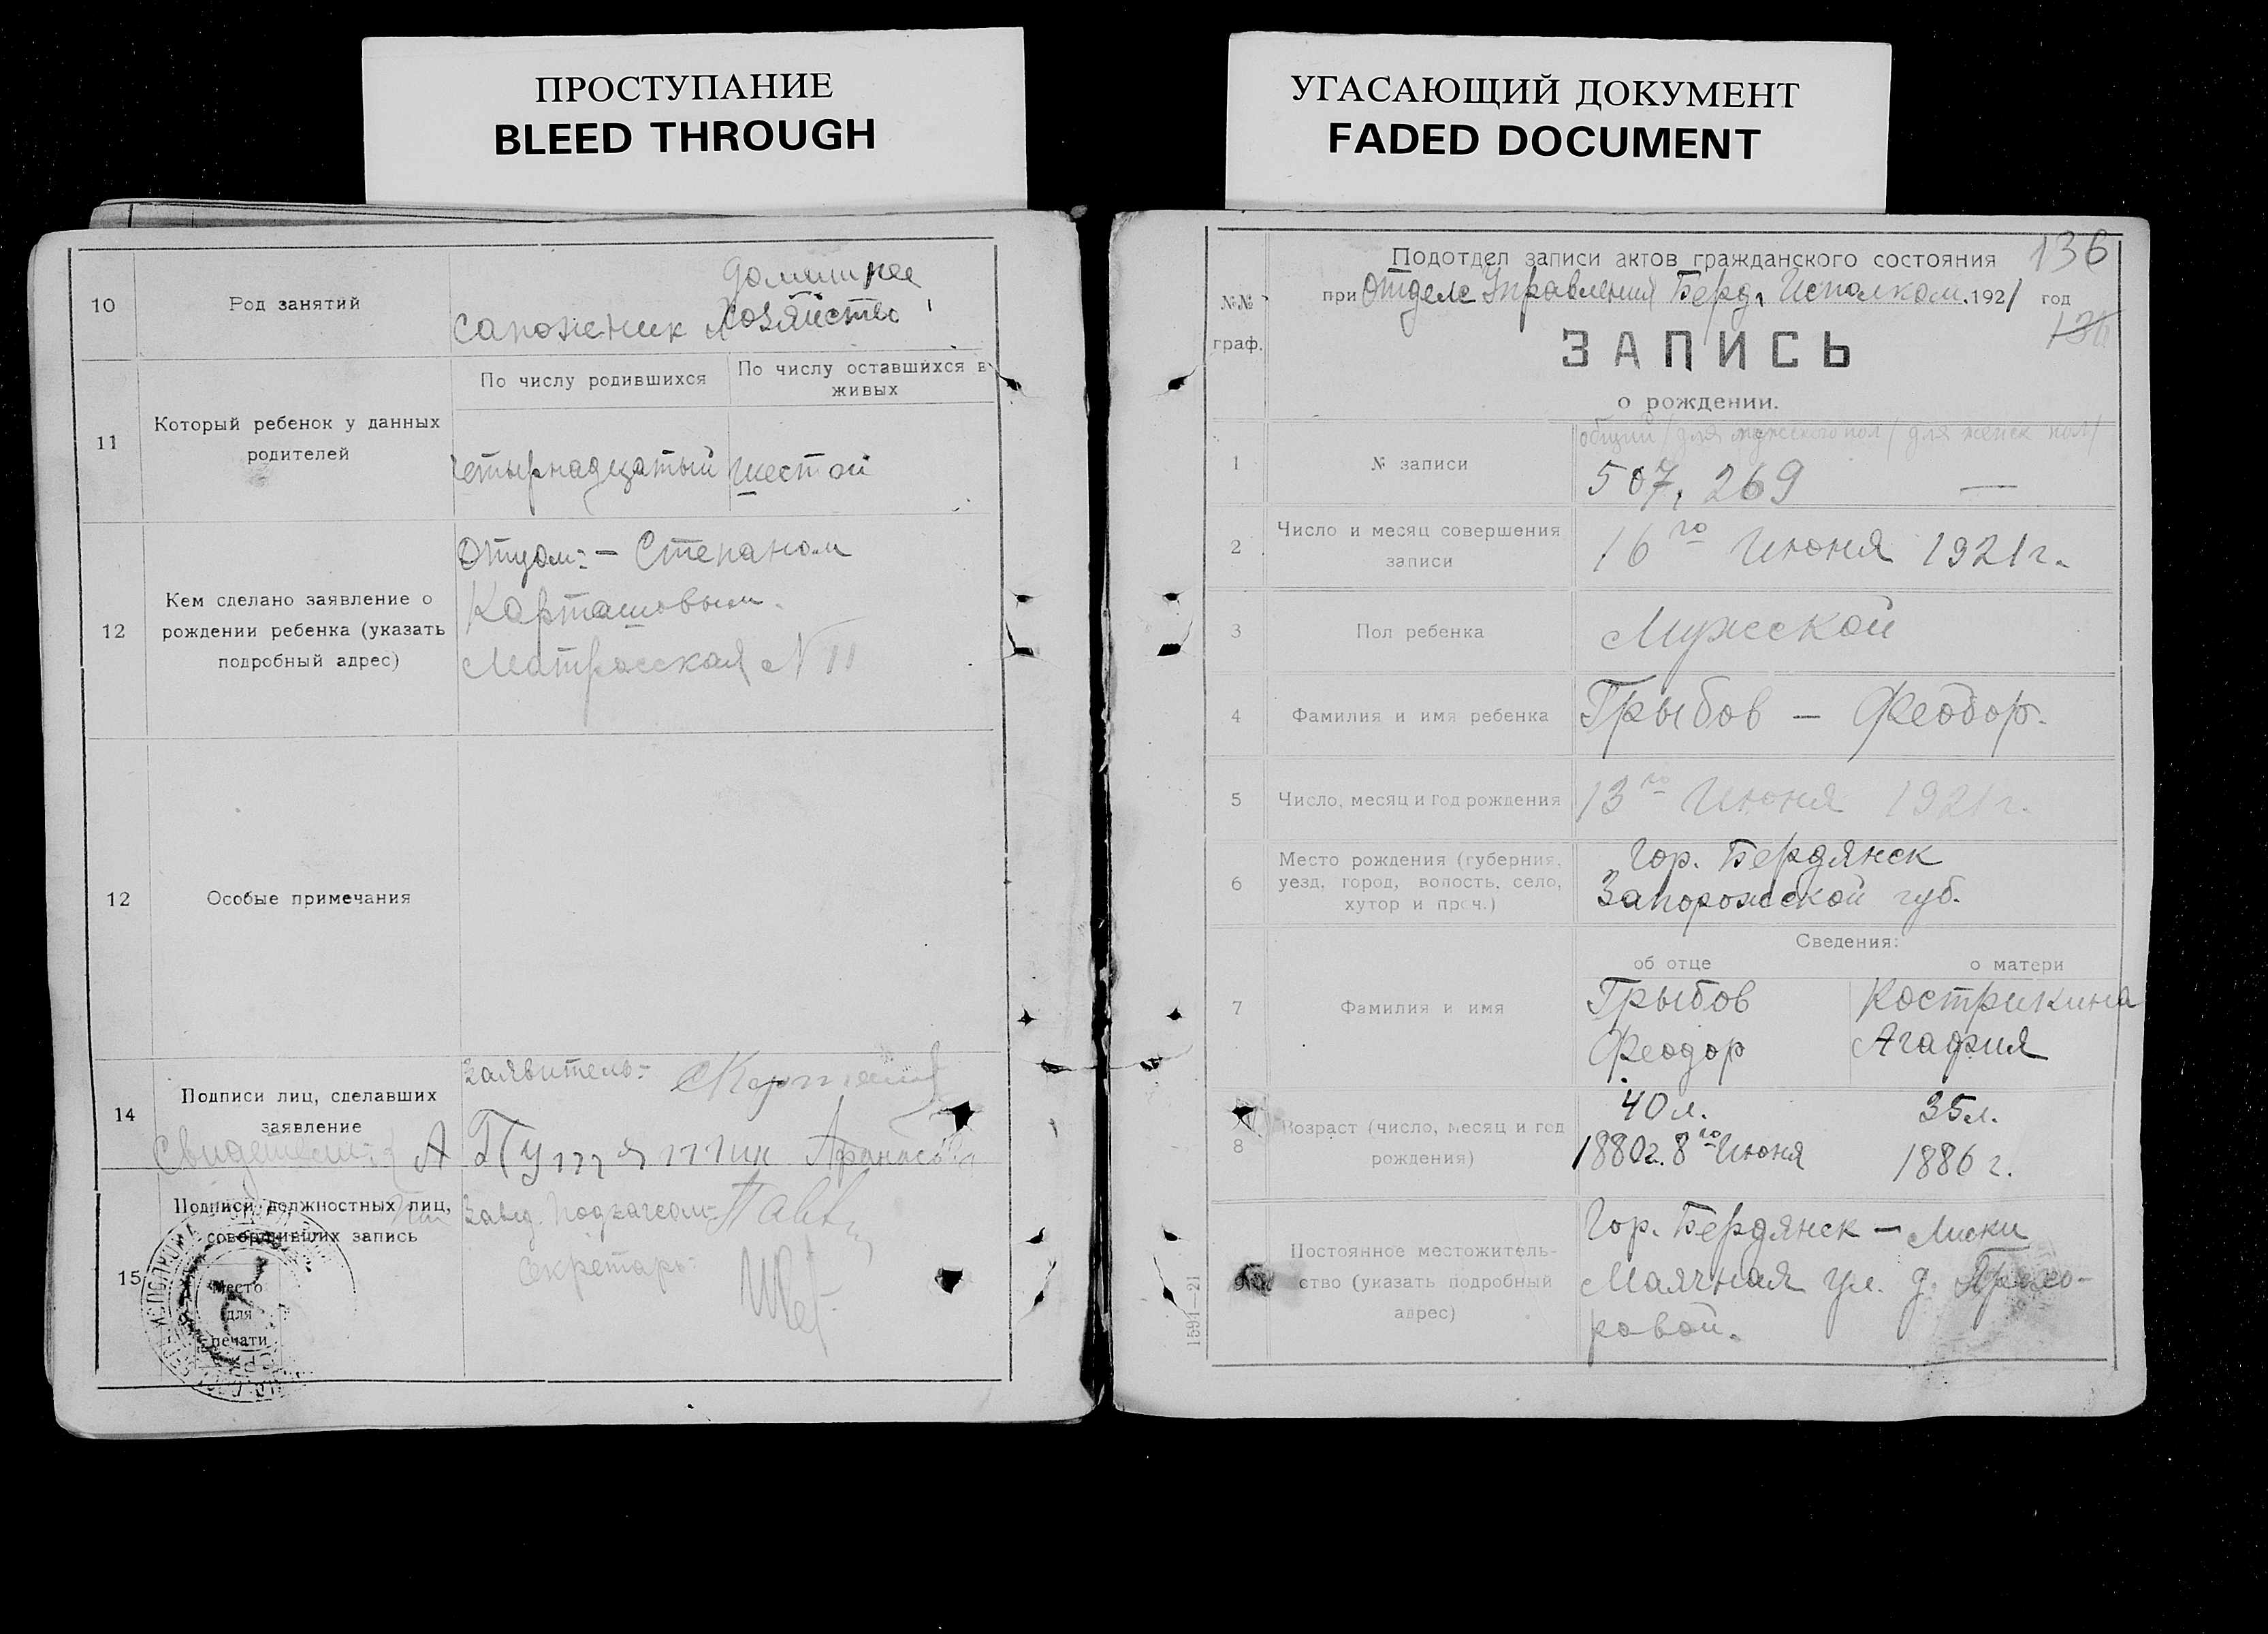 ПРОСТУПАНИЕ
BLEED THROUGH
УГАСАЮЩИЙ ДОКУМЕНТ
FADED DOCUMENT
10
Род занятий
сапожник
домашнее
хозяйство
11
Который ребенок у данных
родителей
По числу родившихся
По числу оставшихся в
живых
четырнадцатый
шестой
12
Кем сделано заявление о
рождении ребенка (указать
подробный адрес)
Отцом: – Степаном
Карташовым.
Матросская № 11
12
Особые примечания
14
Подписи лиц, сделавших
заявление
Заявитель:
Свидетели:
15
Подписи должностных лиц,
совершивших запись
Завед. Подзагсом
Секретарь
Место
для
печати
136
Подотдел записи актов гражданского состояния
при Отделе Управления Берд. Исполком. 1921 год
№№
граф.
ЗАПИСЬ
о рождении.
1
№ записи
общий / для мужского пол / для женск пол /
507, 269 —
2
Число и месяц совершения
записи
16го Июня 1921г.
3
Пол ребенка
Мужской
4
Фамилия и имя ребенка
Грыбов — Феодор.
5
Число, месяц и год рождения
13го Июня 1921г.
6
Место рождения (губерния,
уезд, город, волость, село,
хутор и проч.)
Гор. Бердянск
Запорожской губ.
Сведения:
об отце
о матери
7
Фамилия и имя
Грыбов
Феодор
Кострикина
Агафия
8
Возраст (число, месяц и год
рождения)
40 л.
1880г. 8го Июня
35 л.
1886 г.
9
Постоянное местожитель-
ство (указать подробный
адрес)
Гор. Бердянск — Лиски
Маячная ул. д.
1591—21